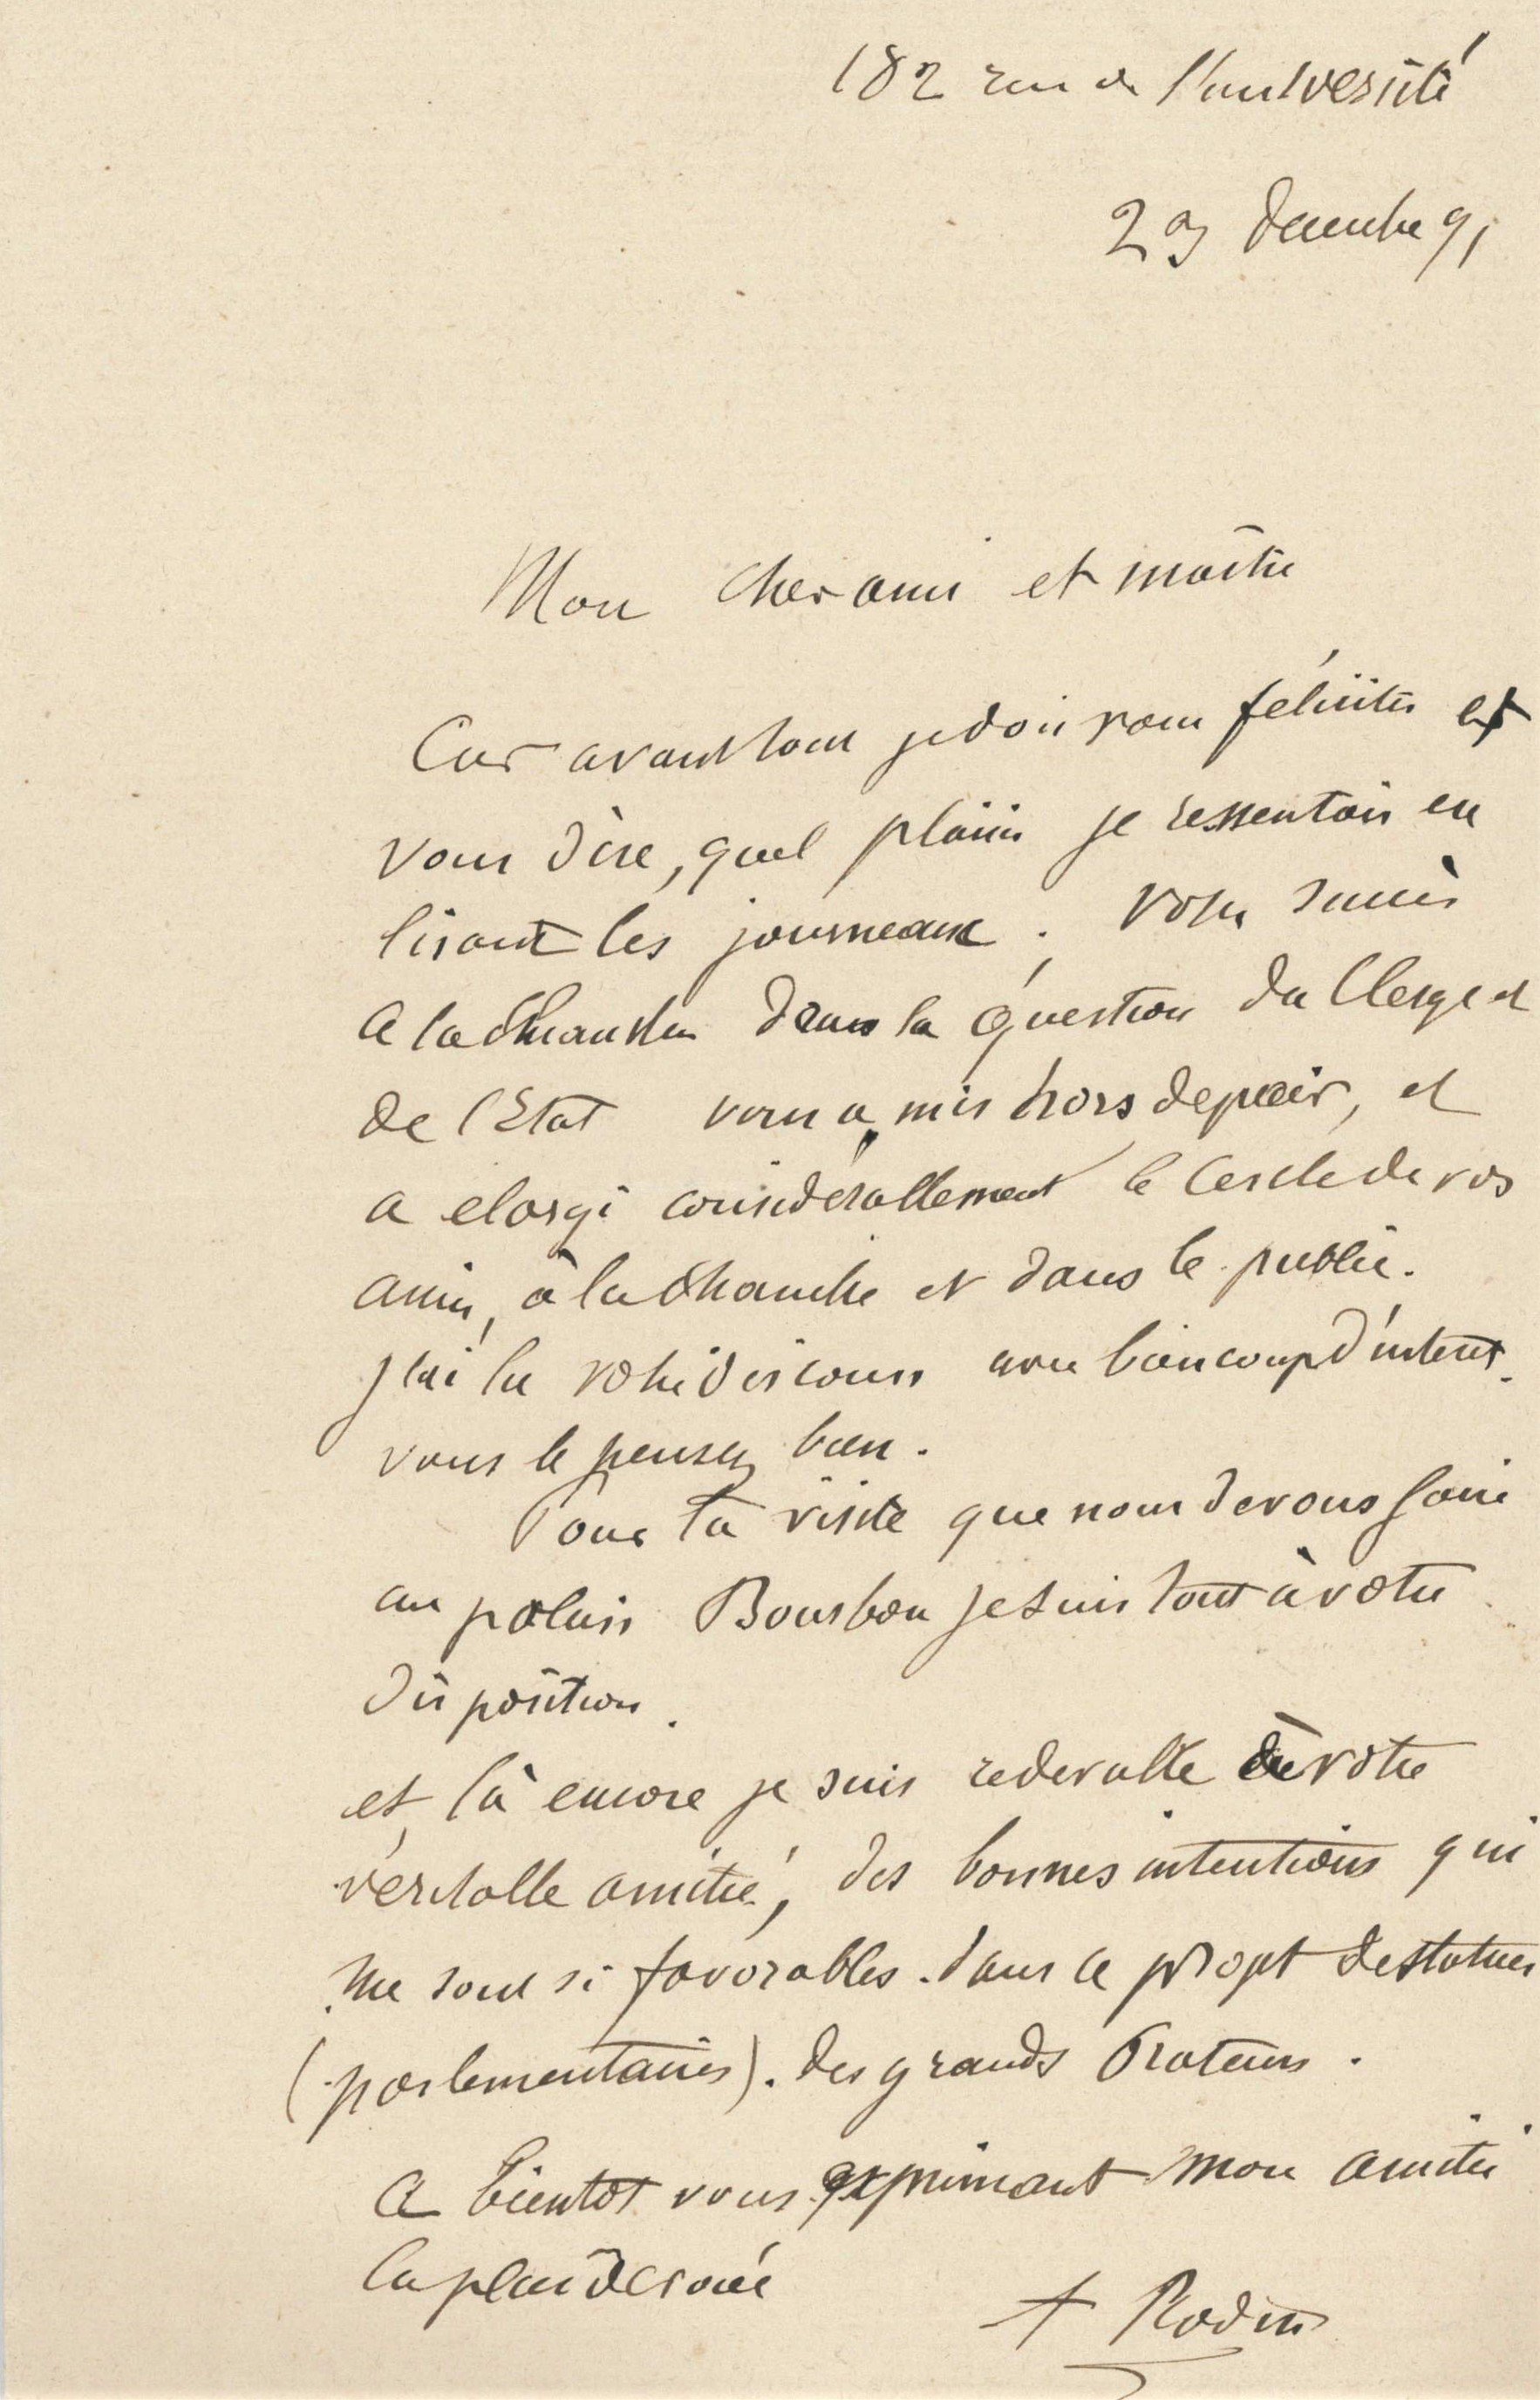 182 rue de l'université
23 decembre 91
Mon cher ami et maître
Car avant tout je dois vous féliciter et
vous dire, quel plaisir je ressentais en
lisant les journeaux. votre succès
a la chambre dans la question du Clergé et
de l'Etat vous a mis hors de pair, et
a elargi considérablement le Cercle de vos
amis, à la chambre et dans le public.
j'ai lu votre discours avec beaucoup d'intérêt.
vous le pensez bien.
Pour la visite que nous devons faire
au palais Bourbon je suis tout à votre
disposition.
et là encore je suis redevable de votre
véritable amitié, des bonnes intentions qui
me sont si favorables. dans le projet de statues
(parlementaires). des grands Orateurs.
a bientot vous exprimant mon amitié
la plus devouée
A Rodin